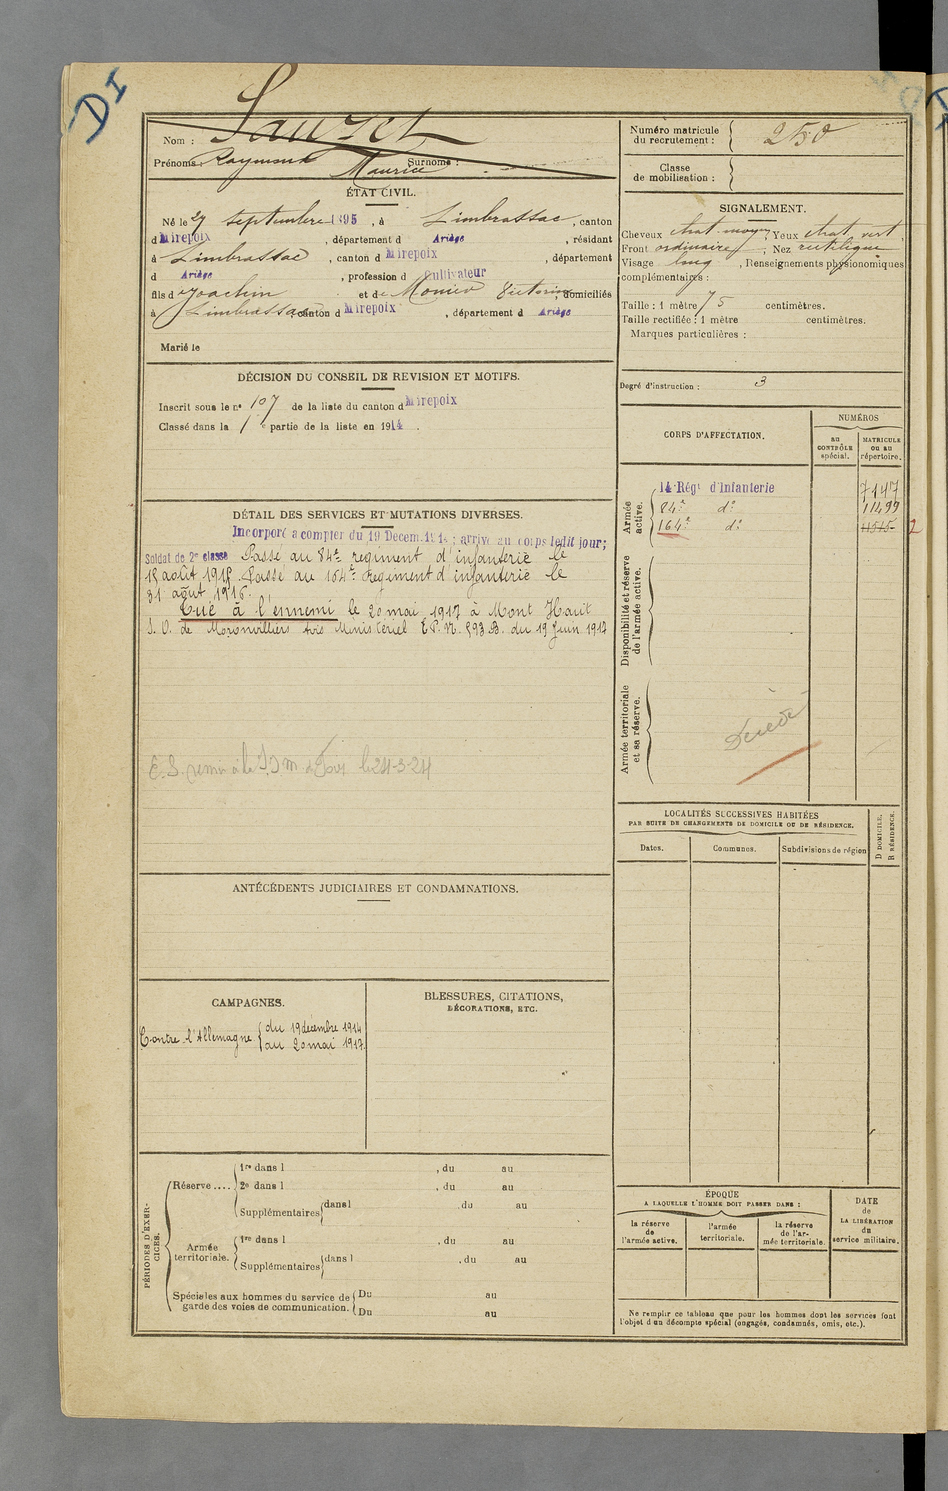 DI
Nom : Sauzet
Prénoms : Raymond Maurice Surnoms :
Numéro matricule du recrutement : 250
Classe de mobilisation :
ÉTAT CIVIL.
Né le 27 septembre 1895, à Limbrassac, canton
d Mirepoix, département d Ariège, résidant
à Limbrassac, canton d Mirepoix, département
d Ariège, profession d cultivateur
fils d Joachim et de Monié Victorine, domiciliés
à Limbrassac canton d Mirepoix, département d Ariège
Marié le
SIGNALEMENT.
Cheveux chat. moyen, Yeux chat. vert,
Front ordinaire, Nez rectiligne
Visage long, Renseignements physionomiques
complémentaires :
Taille : 1 mètre 75 centimètres.
Taille rectifiée : 1 mètre centimètres.
Marques particulières :
Degré d'instruction : 3
DÉCISION DU CONSEIL DE REVISION ET MOTIFS.
Inscrit sous le n° 107 de la liste du canton d Mirepoix
Classé dans la 1 e partie de la liste en 1914.
DÉTAIL DES SERVICES ET MUTATIONS DIVERSES.
Incorporé a compter du 19 Decem. 1914 ; arrivé au corps ledit jour;
Soldat de 2e classe Passé au 84e regiment d'infanterie le
18 août 1915. Passé au 164e Regiment d'infanterie le
31 août 1916.
Tué à l'ennemi le 20 mai 1917 à Mont Haut
S. O. de Moronvilliers Avis Ministériel E.P. N. 893 B. du 19 Juin 1917
E. S. remis à le le 24-3-24
CORPS D'AFFECTATION.
NUMÉROS
au CONTRÔLE spécial.
MATRICULE ou au répertoire.
Armée active.
14e Régt d'Infanterie 7147
84e d° 11499
164e d° 11515 2
Disponibilité et réserve de l'armée active.
Armée territoriale et sa réserve.
Décédé
LOCALITÉS SUCCESSIVES HABITÉES
PAR SUITE DE CHANGEMENTS DE DOMICILE OU DE RÉSIDENCE.
Dates. Communes. Subdivisions de région
D DOMICILE.
R RÉSIDENCE.
ANTÉCÉDENTS JUDICIAIRES ET CONDAMNATIONS.
CAMPAGNES.
Contre l'Allemagne { du 19 décembre 1914
au 20 mai 1917.
BLESSURES, CITATIONS,
DÉCORATIONS, ETC.
PÉRIODES D'EXERCICES.
Réserve .... 1re dans l , du au
2e dans l , du au
Supplémentaires dans l , du au
Armée territoriale. 1re dans l , du au
Supplémentaires dans l , du au
Spéciales aux hommes du service de garde des voies de communication. Du au
Du au
ÉPOQUE
A LAQUELLE L'HOMME DOIT PASSER DANS :
la réserve de l'armée active.
l'armée territoriale.
la réserve de l'armée territoriale.
DATE de LA LIBÉRATION du service militaire.
Ne remplir ce tableau que pour les hommes dont les services font
l'objet d'un décompte spécial (engagés, condamnés, omis, etc.).